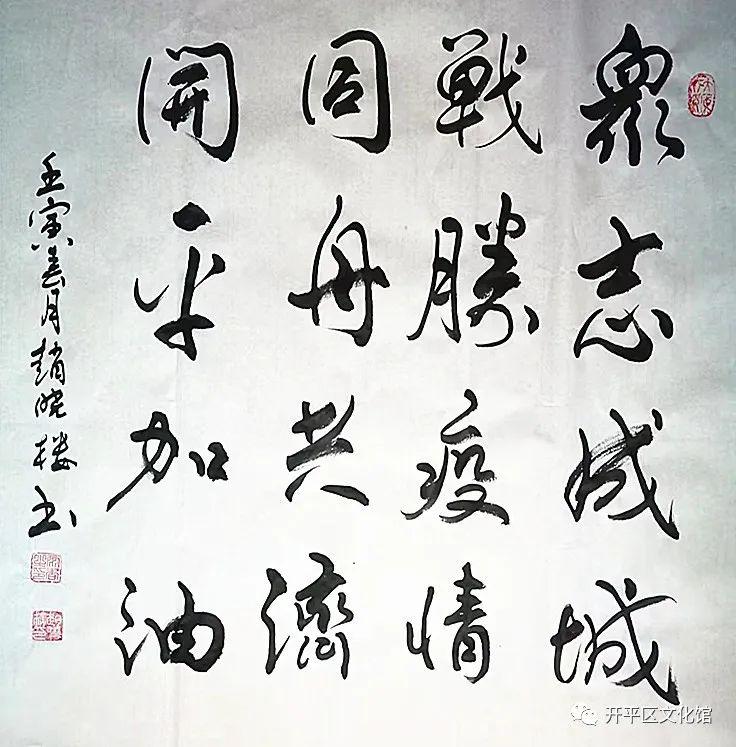 眾志成城
戰勝疫情
同舟共濟
開平加油
壬寅春月趙曉樓书
开平区文化馆